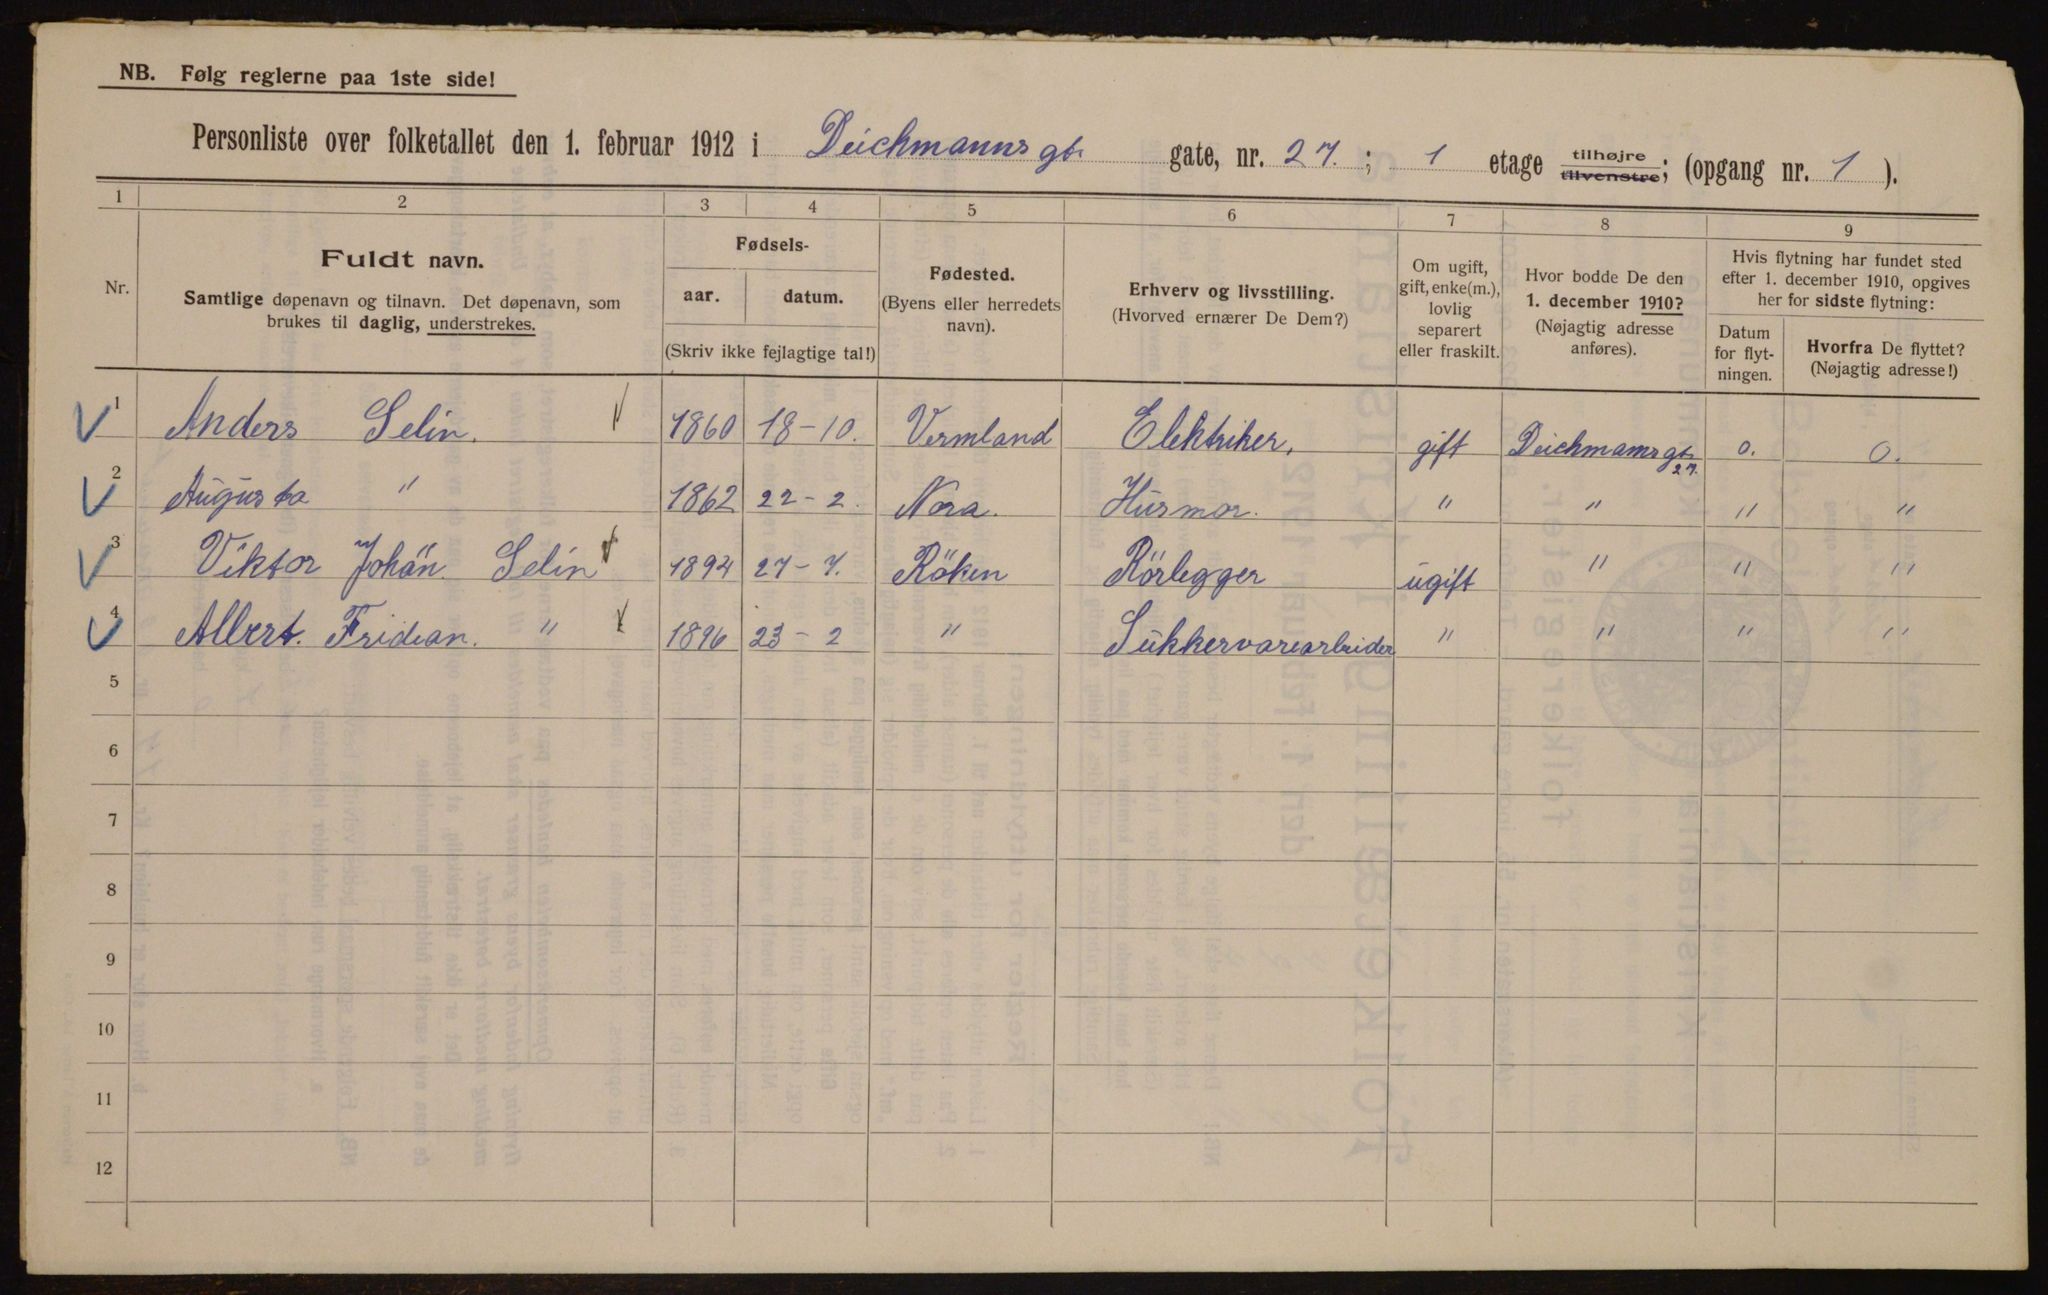 NB. Følg reglerne paa 1ste side!
Personliste over folketallet den 1. februar 1912 i Deichmanns gt. gate, nr. 27. ; 1 etage tilhøjre tilvenstre; (opgang nr. 1 ).
1 2 3 4 5 6 7 8 9
Nr.
Fuldt navn.
Samtlige døpenavn og tilnavn. Det døpenavn, som
brukes til daglig, understrekes.
Fødsels-
aar. datum.
(Skriv ikke fejlagtige tal!)
Fødested.
(Byens eller herredets
navn).
Erhverv og livsstilling.
(Hvorved ernærer De Dem?)
Om ugift,
gift, enke(m.),
lovlig
separert
eller fraskilt.
Hvor bodde De den
1. december 1910?
(Nøjagtig adresse
anføres).
Hvis flytning har fundet sted
efter 1. december 1910, opgives
her for sidste flytning:
Datum
for flyt-
ningen.
Hvorfra De flyttet?
(Nøjagtig adresse!)
1 Anders Selin. 1860 18-10. Vermland Elektriker. gift Deichmansgt. 27. 0. 0.
2 Augusta " 1862 22-2. Nora. Husmor. " " " "
3 Viktor Johan. Selin 1894 27-7. Röken Rörlegger ugift " " "
4 Albert. Fridean. " 1896 23-2 " Sukkervarearbeider " " " "
5
6
7
8
9
10
11
12